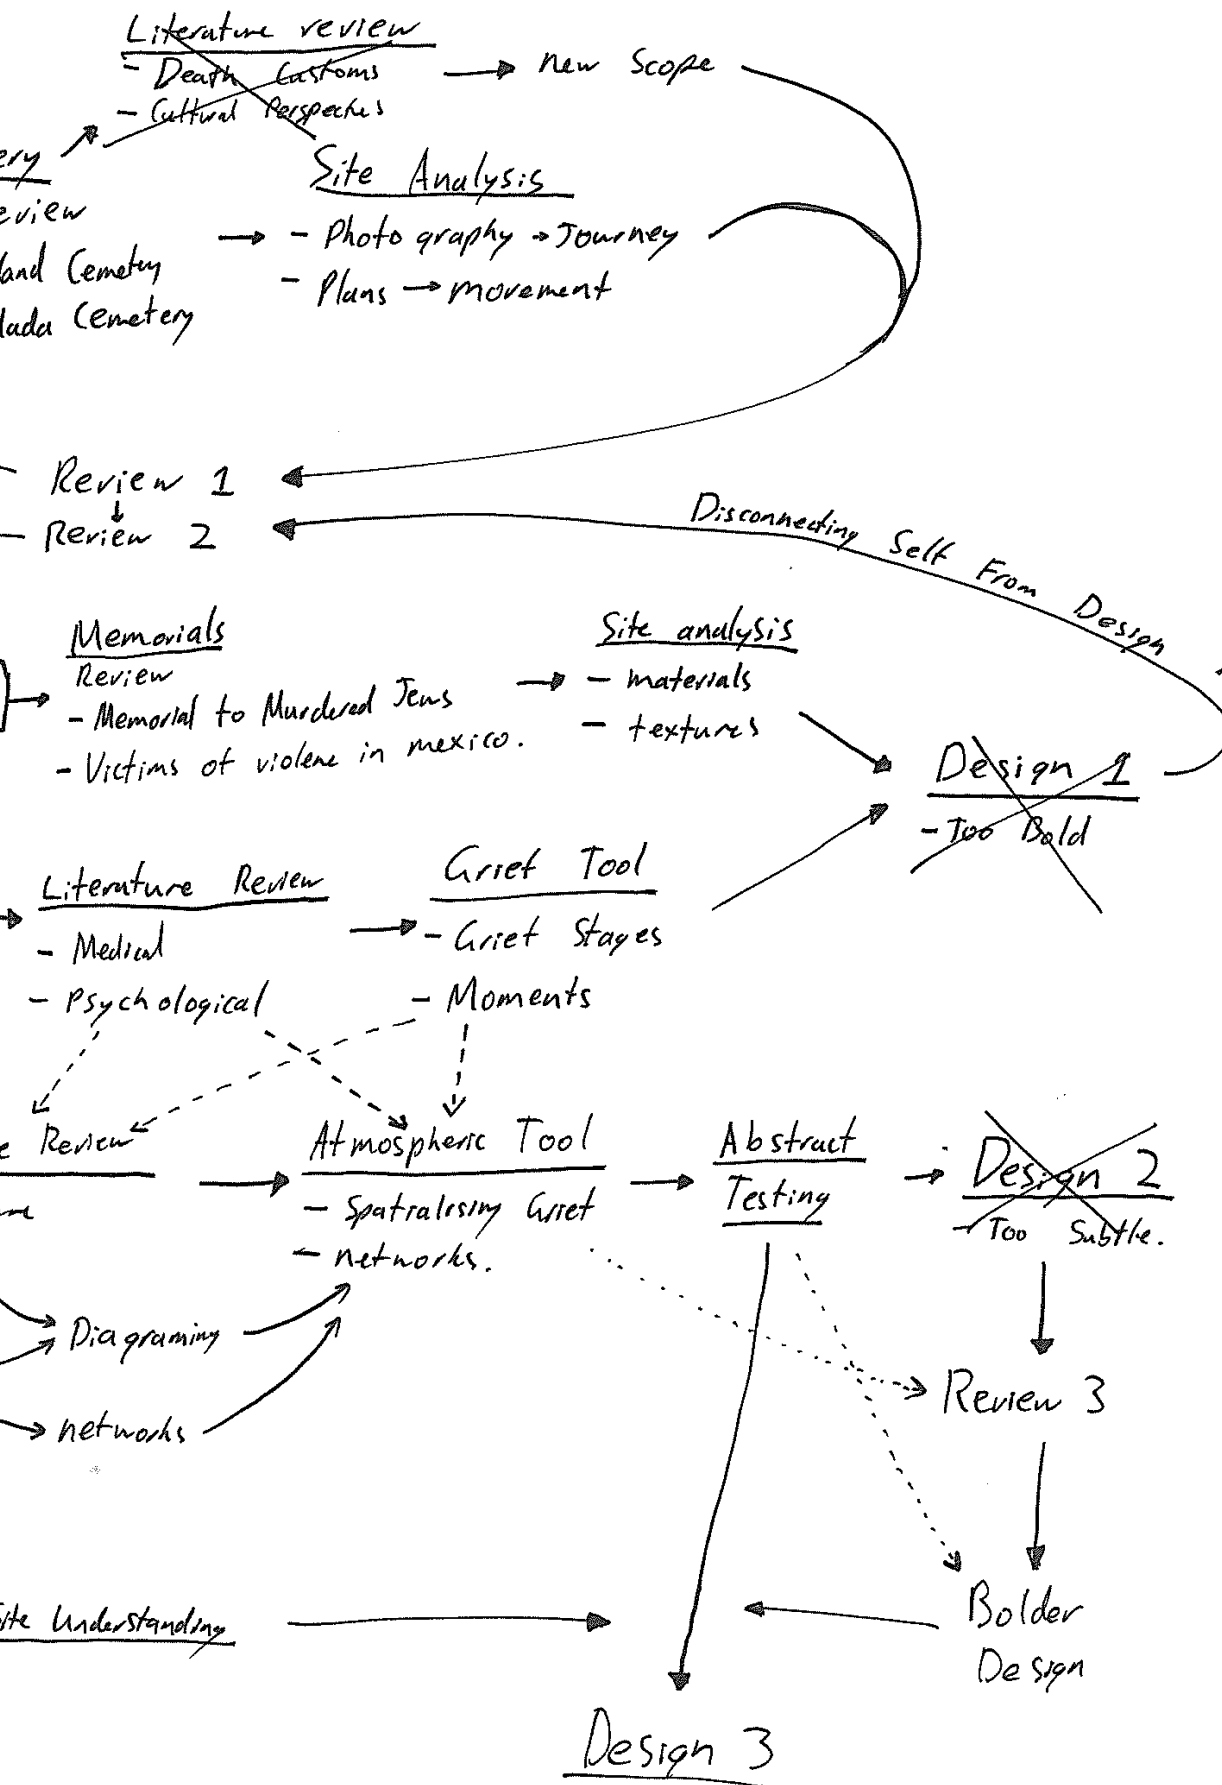 Literature review
- Death Customs
- Cultural Perspectives
→ new Scope
Site Analysis
- Photography → Journey
- Plans → movement
ery
eview
land Cemetery
lada Cemetery
Review 1
Review 2
Disconnecting Self From Design
Memorials
Review
- Memorial to Murdered Jews
- Victims of violene in mexico.
Site analysis
- materials
- textures
Design 1
- Too Bold
Literature Review
- Medical
- Psychological
Grief Tool
- Grief Stages
- Moments
e Review
Atmospheric Tool
- Spatialising Grief
- networks.
Abstract
Testing
Design 2
- Too Subtle.
Diagraming
networks
Review 3
Site Understanding
Bolder
Design
Design 3